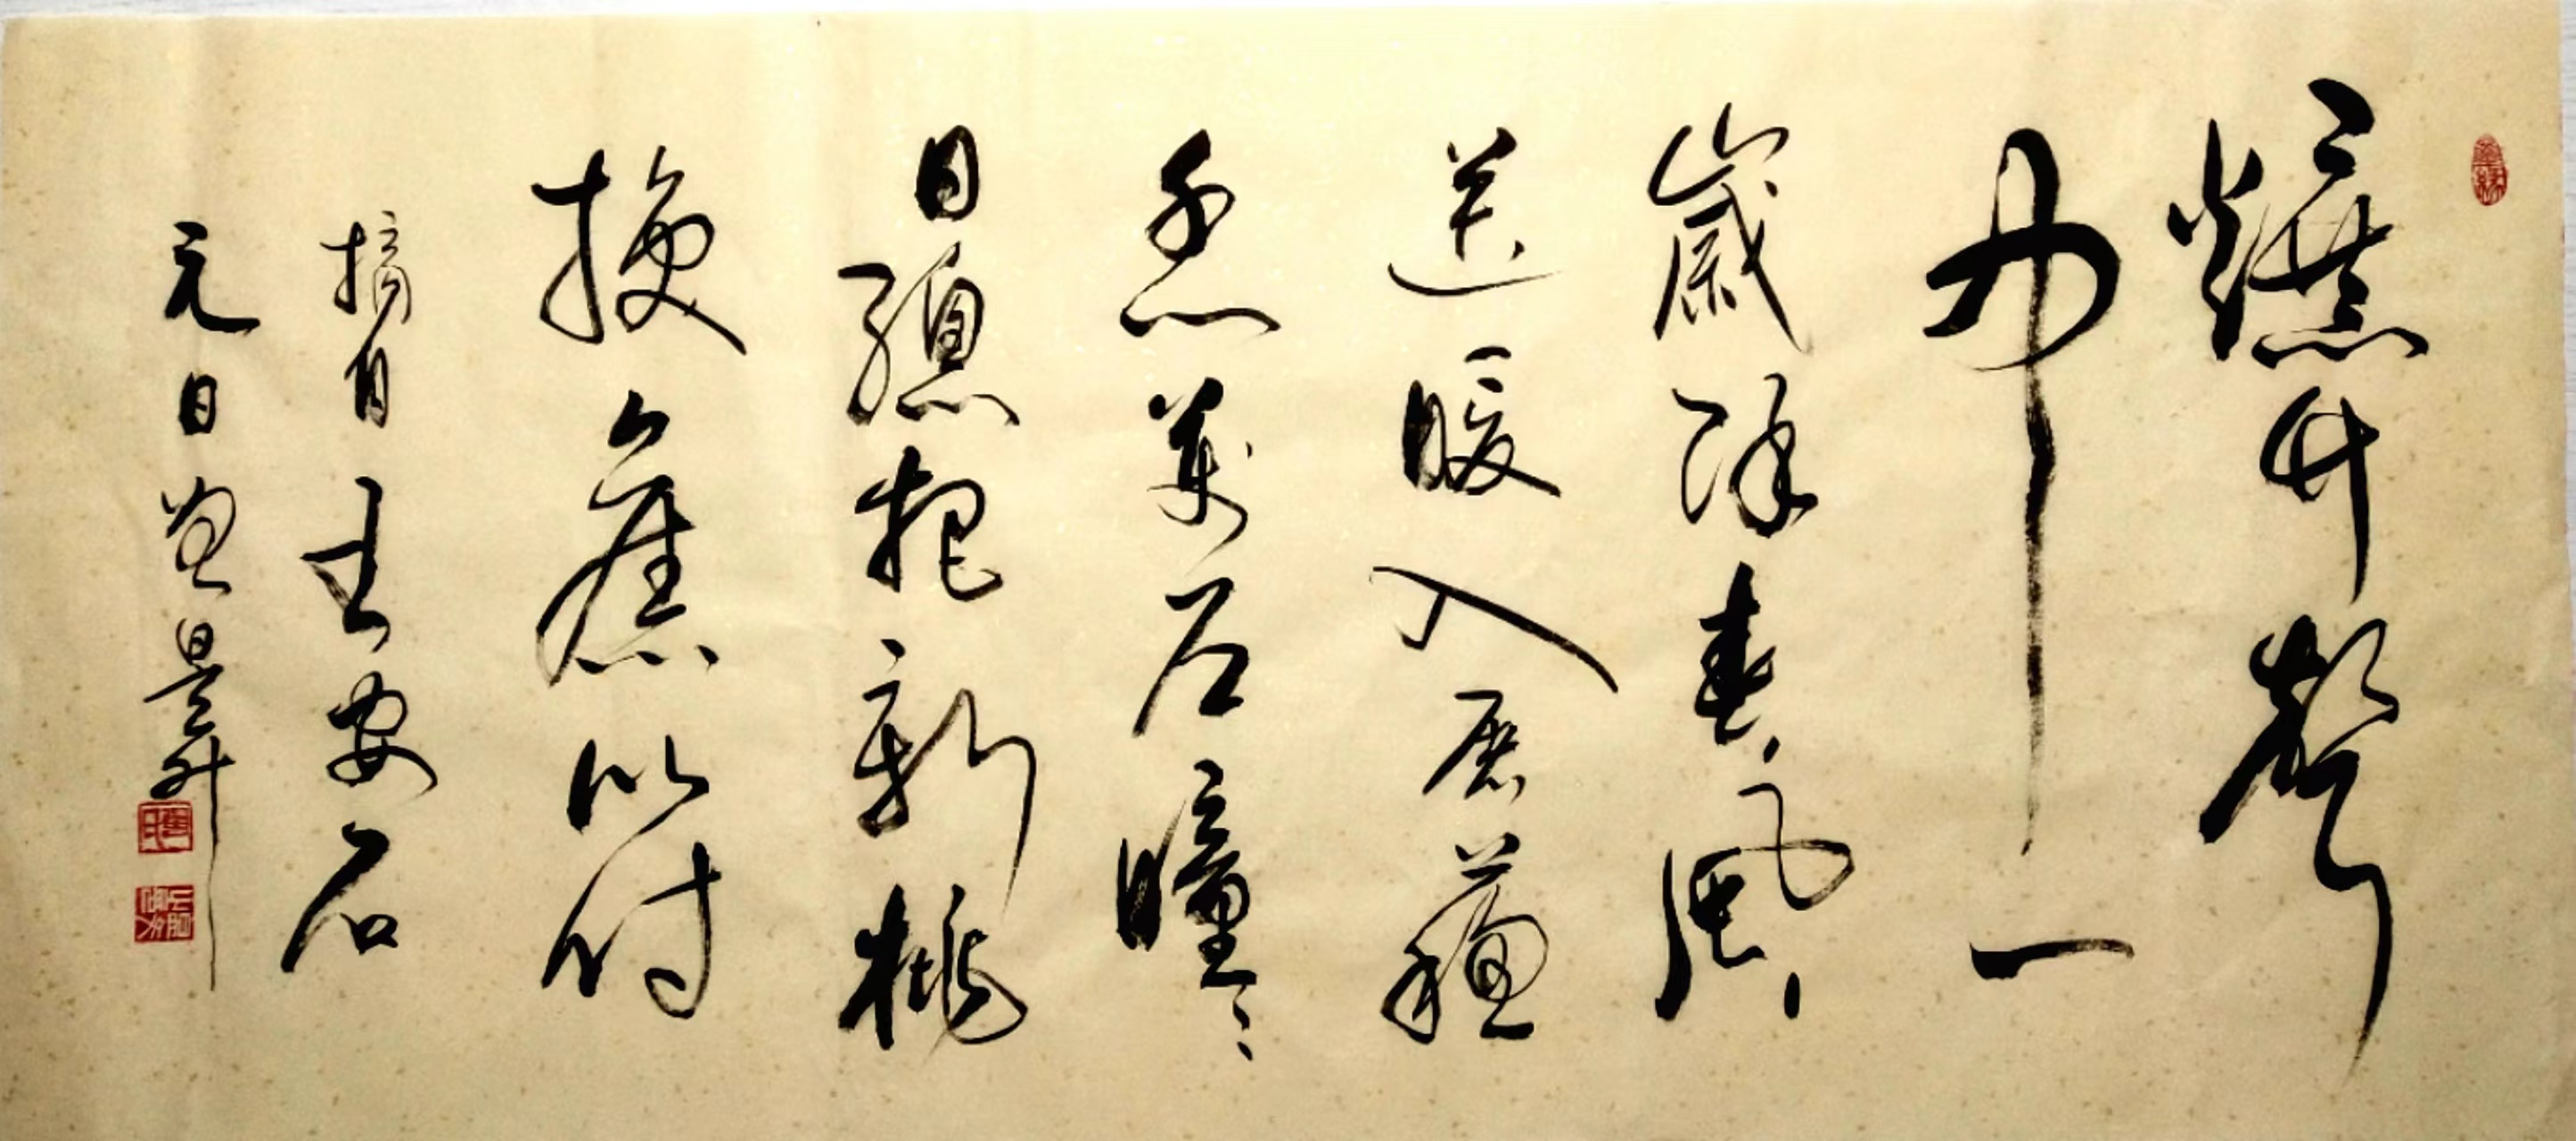 爆竹聲
中一
歲除春風
送暖入屠蘇
千門萬戶曈々
日總把新桃
換舊符
摘自王安石
元日